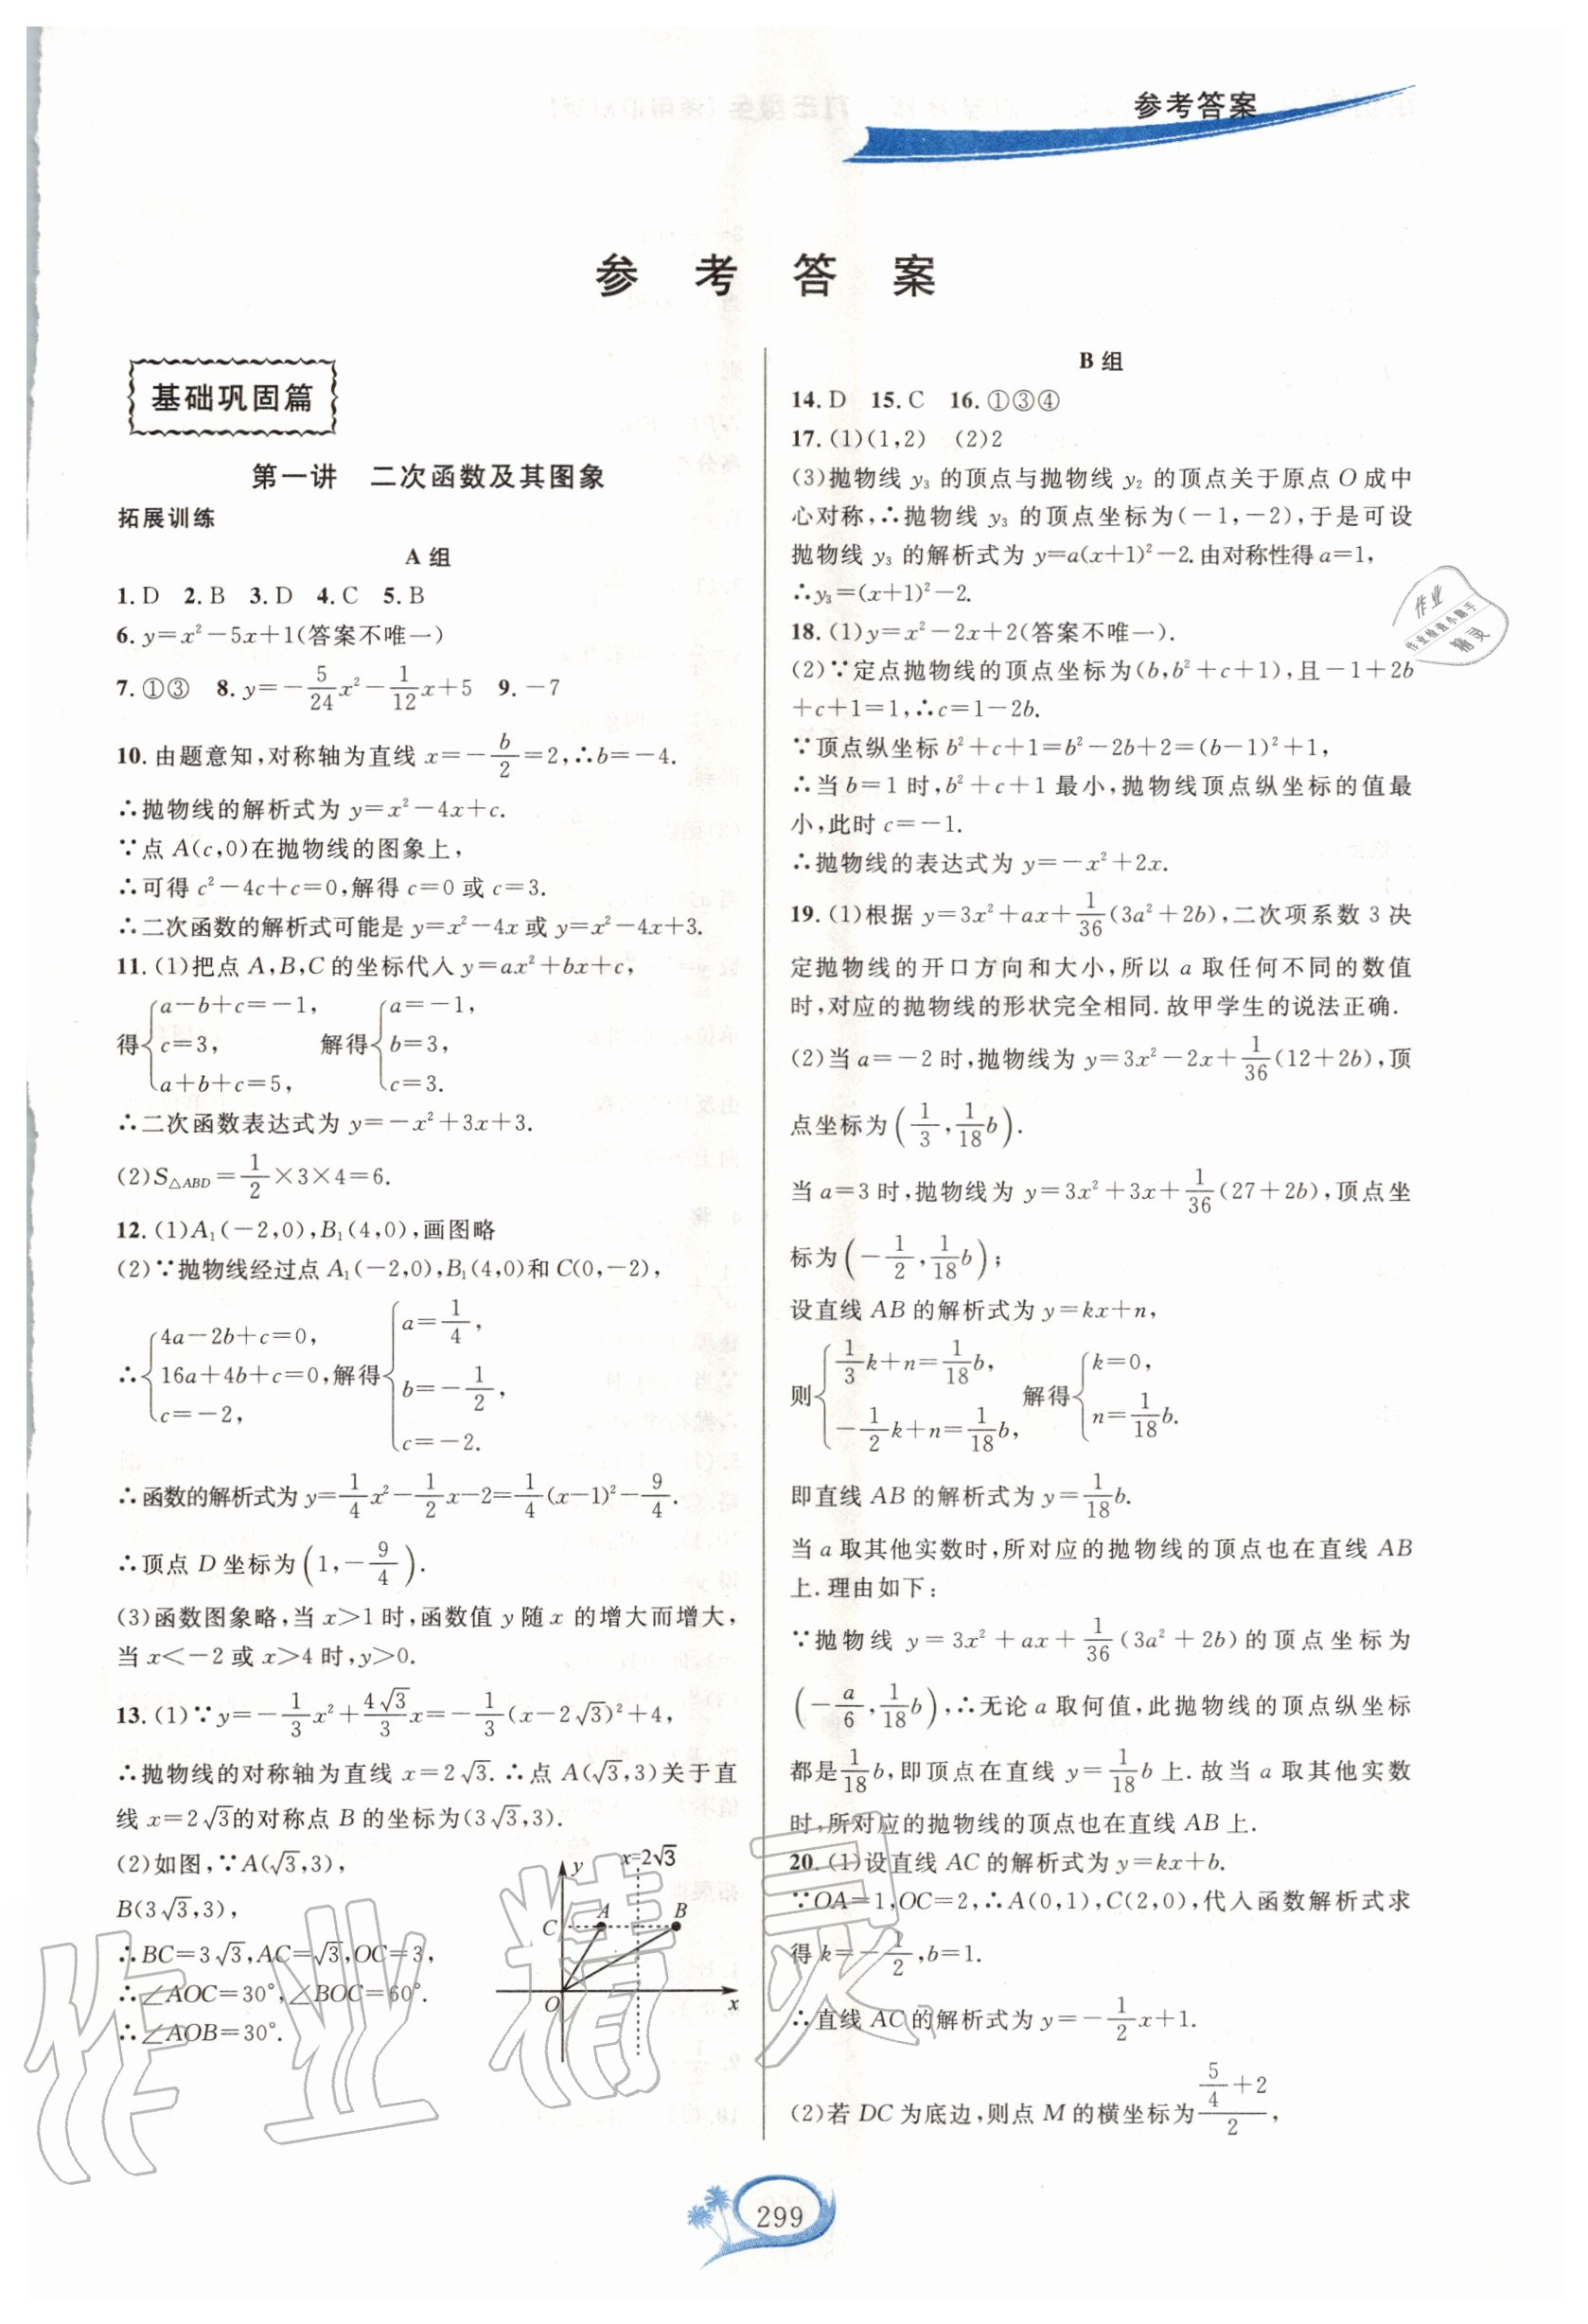 参考答案
参 考 答 案
基础巩固篇
第一讲 二次函数及其图象
拓展训练
A 组
1. D 2. B 3. D 4. C 5. B
6. y=x²-5x+1(答案不唯一)
7. ①③ 8. y=-5/24x²-1/12x+5 9. -7
10. 由题意知,对称轴为直线 x=-b/2=2,∴b=-4.
∴抛物线的解析式为 y=x²-4x+c.
∵点 A(c,0)在抛物线的图象上,
∴可得 c²-4c+c=0,解得 c=0 或 c=3.
∴二次函数的解析式可能是 y=x²-4x 或 y=x²-4x+3.
11. (1)把点 A,B,C 的坐标代入 y=ax²+bx+c,
得{a-b+c=-1, c=3, a+b+c=5, 解得{a=-1, b=3, c=3.
∴二次函数表达式为 y=-x²+3x+3.
(2)S△ABD=1/2×3×4=6.
12. (1)A₁(-2,0),B₁(4,0),画图略
(2)∵抛物线经过点 A₁(-2,0),B₁(4,0)和 C(0,-2),
∴{4a-2b+c=0, 16a+4b+c=0, c=-2, 解得{a=1/4, b=-1/2, c=-2.
∴函数的解析式为 y=1/4x²-1/2x-2=1/4(x-1)²-9/4.
∴顶点 D 坐标为(1,-9/4).
(3)函数图象略,当 x>1 时,函数值 y 随 x 的增大而增大,
当 x<-2 或 x>4 时,y>0.
13. (1)∵y=-1/3x²+4√3/3x=-1/3(x-2√3)²+4,
∴抛物线的对称轴为直线 x=2√3. ∴点 A(√3,3)关于直
线 x=2√3的对称点 B 的坐标为(3√3,3).
(2)如图,∵A(√3,3),
B(3√3,3),
∴BC=3√3,AC=√3,OC=3,
∴∠AOC=30°,∠BOC=60°.
∴∠AOB=30°.
y
x=2√3
C
A
B
O
x
B 组
14. D 15. C 16. ①③④
17. (1)(1,2) (2)2
(3)抛物线 y₃ 的顶点与抛物线 y₂ 的顶点关于原点 O 成中
心对称,∴抛物线 y₃ 的顶点坐标为(-1,-2),于是可设
抛物线 y₃ 的解析式为 y=a(x+1)²-2.由对称性得 a=1,
∴y₃=(x+1)²-2.
18. (1)y=x²-2x+2(答案不唯一).
(2)∵定点抛物线的顶点坐标为(b,b²+c+1),且-1+2b
+c+1=1,∴c=1-2b.
∵顶点纵坐标 b²+c+1=b²-2b+2=(b-1)²+1,
∴当 b=1 时,b²+c+1 最小,抛物线顶点纵坐标的值最
小,此时 c=-1.
∴抛物线的表达式为 y=-x²+2x.
19. (1)根据 y=3x²+ax+1/36(3a²+2b),二次项系数 3 决
定抛物线的开口方向和大小,所以 a 取任何不同的数值
时,对应的抛物线的形状完全相同.故甲学生的说法正确.
(2)当 a=-2 时,抛物线为 y=3x²-2x+1/36(12+2b),顶
点坐标为(1/3,1/18b).
当 a=3 时,抛物线为 y=3x²+3x+1/36(27+2b),顶点坐
标为(-1/2,1/18b);
设直线 AB 的解析式为 y=kx+n,
则{1/3k+n=1/18b, -1/2k+n=1/18b, 解得{k=0, n=1/18b.
即直线 AB 的解析式为 y=1/18b.
当 a 取其他实数时,所对应的抛物线的顶点也在直线 AB
上.理由如下:
∵抛物线 y=3x²+ax+1/36(3a²+2b)的顶点坐标为
(-a/6,1/18b),∴无论 a 取何值,此抛物线的顶点纵坐标
都是1/18b,即顶点在直线 y=1/18b 上.故当 a 取其他实数
时,所对应的抛物线的顶点也在直线 AB 上.
20. (1)设直线 AC 的解析式为 y=kx+b.
∵OA=1,OC=2,∴A(0,1),C(2,0),代入函数解析式求
得 k=-1/2,b=1.
∴直线 AC 的解析式为 y=-1/2x+1.
(2)若 DC 为底边,则点 M 的横坐标为(5/4+2)/2,
299
作业
作业检查小助手
精灵
作业精灵